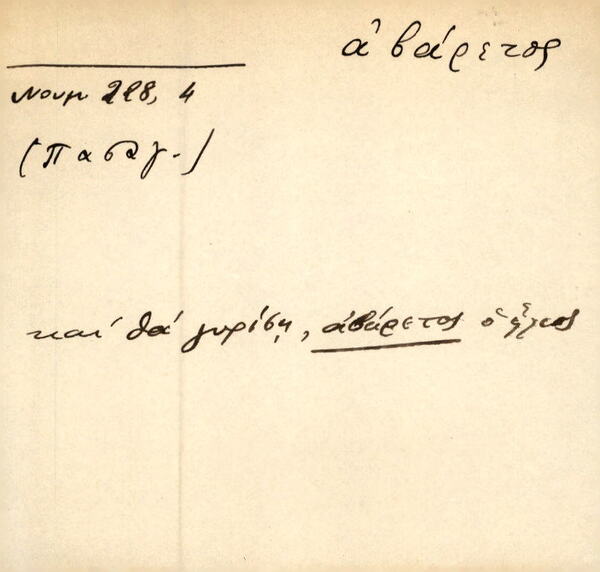 ἀβάρετος
Νουμ 228, 4
(Πασαγ.)
καί θά γυρίσῃ, ἀβάρετος ὁ ἥλιος